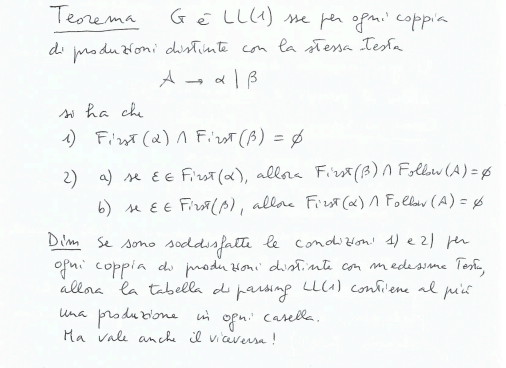 Teorema G è LL(1) sse per ogni coppia
di produzioni distinte con la stessa testa
A → α | β
si ha che
1) First(α) ∩ First(β) = ∅
2) a) se ε ∈ First(α), allora First(β) ∩ Follow(A) = ∅
b) se ε ∈ First(β), allora First(α) ∩ Follow(A) = ∅
Dim Se sono soddisfatte le condizioni 1) e 2) per
ogni coppia di produzioni distinte con medesima testa,
allora la tabella di parsing LL(1) contiene al più
una produzione in ogni casella.
Ma vale anche il viceversa!